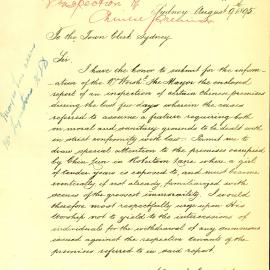 Inspection of
Chinese
Sydney August 19th 1895
To the Town Clerk Sydney
Sir
I have the honor to submit for the inform-
ation of the Rt Worshl The Mayor the enclosed
report of an inspection of certain chinese premises
during the last few days wherein the cases
referred to assume a feature requiring both
on moral and sanitary grounds to be dealt with
in strict conformity with law. Permit me to
draw special attention to the premises occupied
by in Robertson Lane where a girl
of tender years is exposed to, and must become
eventually if not already familiarized with
scenes of the grossest immorality. I would
therefore most respectfully urge upon His
Worship not to yield to the intercessions of
individuals for the withdrawal of any summons
issued against the respective tenants of the
premises referred to in said report.